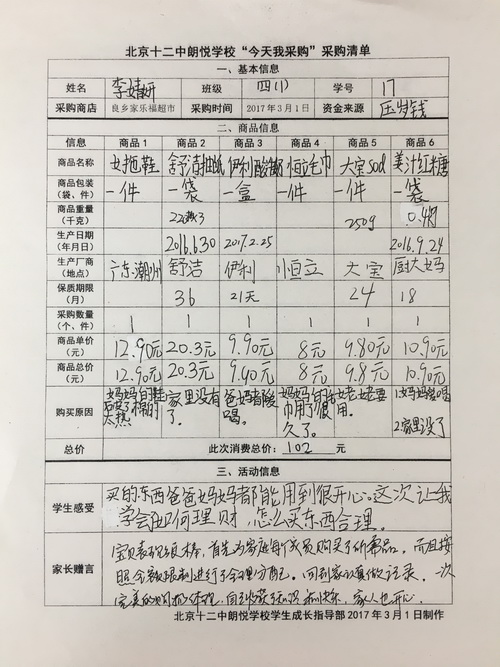 北京十二中朗悦学校“今天我采购”采购清单
一、基本信息
姓名 李婧妍 班级 四(1) 学号 17
采购商店 良乡家乐福超市 采购时间 2017年3月1日 资金来源 压岁钱
二、商品信息
信息 商品1 商品2 商品3 商品4 商品5 商品6
商品名称 女拖鞋 舒洁抽纸 伊利酸奶 恒立毛巾 大宝sod 姜汁红糖
商品包装(袋、件) 一件 一袋 一盒 一件 一件 一袋
商品重量(千克) 250g
生产日期(年月日) 2016.6.30 2017.2.25 2016.9.24
生产厂商(地点) 广东.潮州 舒洁 伊利 恒立 大宝 厨大妈
保质期限(月) 36 21天 24 18
采购数量(个、件) 1 1 1 1 1 1
商品单价(元) 12.90元 20.3元 9.90元 8元 9.80元 10.90元
商品总价(元) 12.90元 20.3元 9.90元 8元 9.8元 10.90元
购买原因 家里没有了. 爸妈都酸喝。 姥姥要用。 1.妈妈要喝 2.家里没了
总价 此次消费总价:102元
三、活动信息
学生感受 买的东西爸爸妈妈都能用到很开心。这次让我
学会如何理财,怎么买东西合理。
家长赠言 宝贝表现很棒,首先为家庭每个成员购买了所需品。而且按
照金额限制进行了合理分配。回到家认真做记录。一次
家人也开心.
北京十二中朗悦学校学生成长指导部2017年3月1日制作